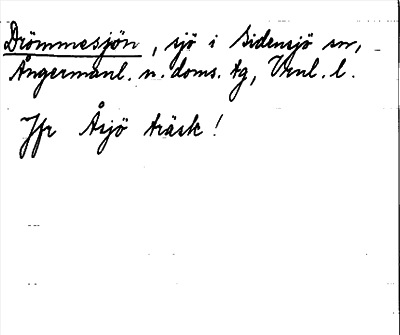 Drömmesjön, sjö i Sidensjö sn,
Ångermanl. n. doms. tg, Vrnl. l.
Jfr Åsjö träsk!